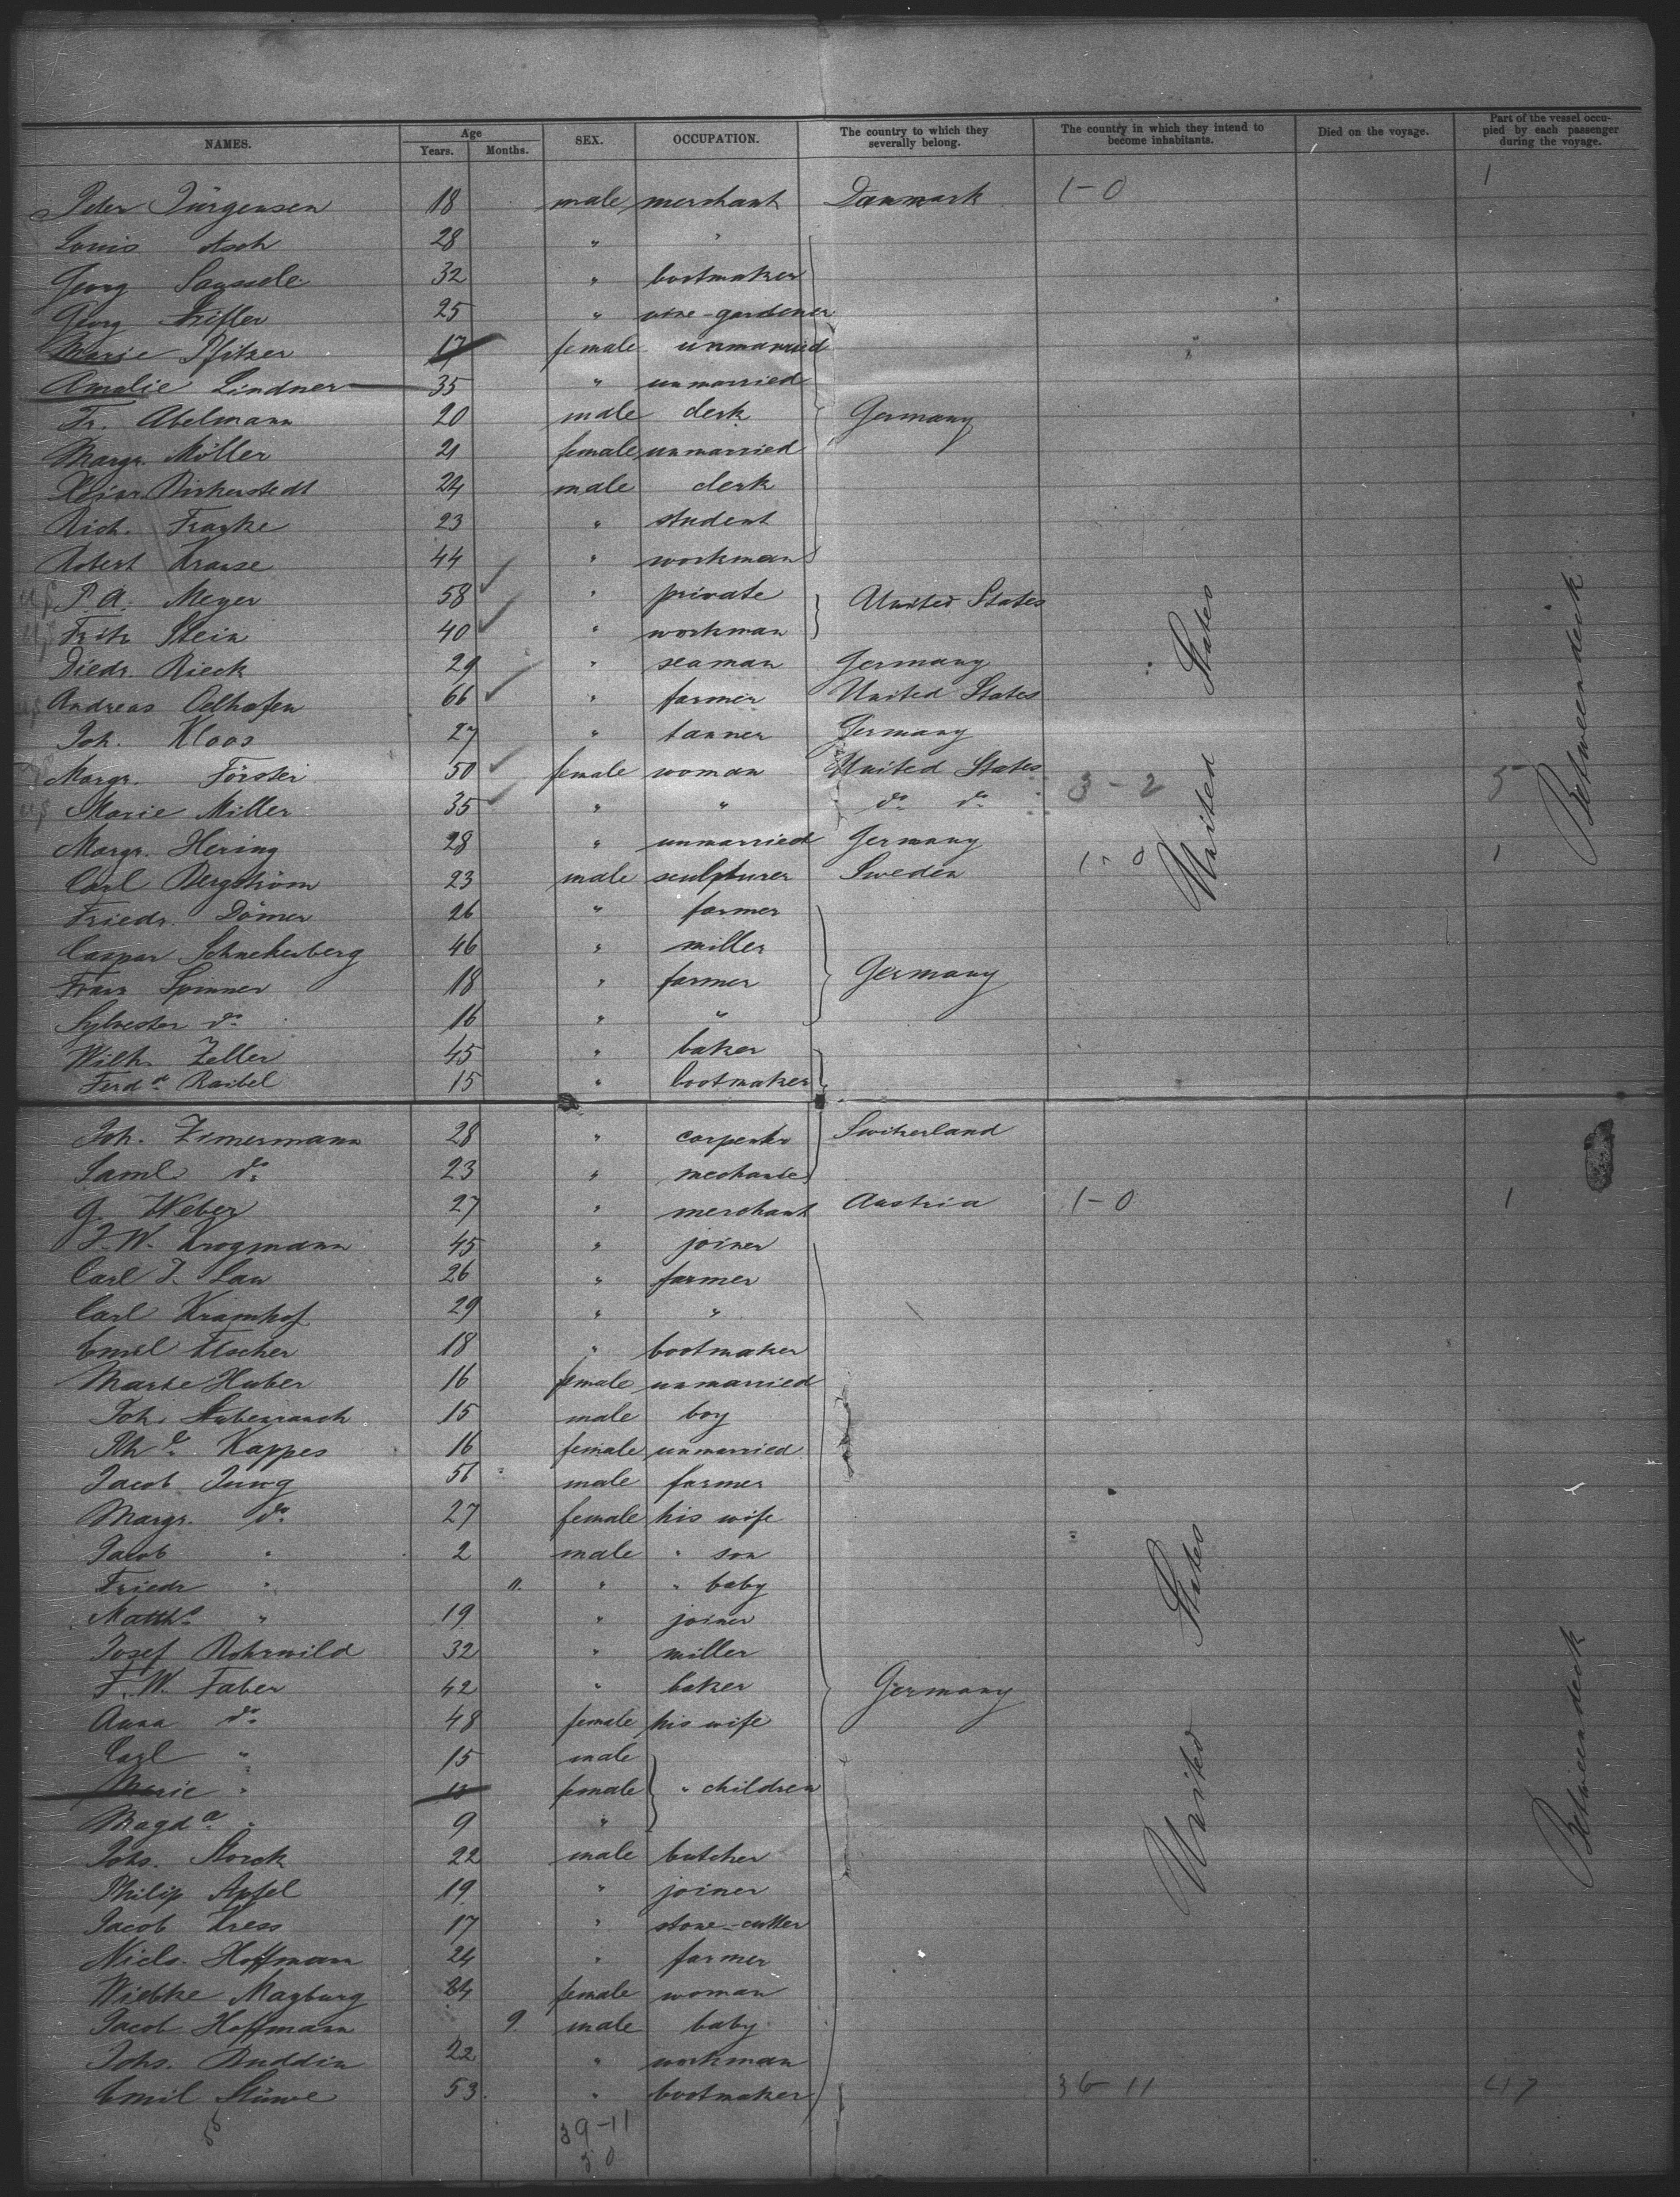 NAMES. Age Years. Months. SEX. OCCUPATION. The country to which they severally belong. The country in which they intend to become inhabitants. Died on the voyage. Part of the vessel occupied by each passenger during the voyage.
Peter Jürgensen 18 male merchant Danmark 1-0 1
Louis Asch 28 " "
Georg 32 " bootmaker
Georg 25 " vine-gardener
Marie Pfitzer 17 female unmarried
Amalie Lindner 35 " unmarried
Fr. Abelmann 20 male clerk Germany
Margr. Möller 21 female unmarried
Birkerstedt 24 male clerk
Rich. Franke 23 " student
Robert Krause 44 " workman
P. A. Meyer 58 " private United States
Fritz Stein 40 " workman
Diedr. Rieck 29 " seaman Germany
Andreas Oelhafen 66 " farmer United States
Joh. Kloos 27 " tanner Germany
Margr. Förster 50 female woman United States 3-2 5
Marie Miller 35 " " do do
Margr. Hering 28 " unmarried Germany
Carl Bergström 23 male sculpturer Sweden 1-0 1
Friedr. Dömer 26 " farmer
Caspar Schnekerberg 46 " miller
Franz Spinner 18 " farmer Germany
Sylvester do 16 " "
Wilh. Zeller 45 " baker
Ferdd Raibel 15 " bootmaker
United States
Betweendeck
Joh. Zimermann 28 " carpenter Switzerland
Saml do 23 " mechanic
G. Weber 27 " merchant Austria 1-0 1
F. W. Krogmann 45 " joiner
Carl J. Lau 26 " farmer
Carl Kramhof 29 " "
Emil Fischer 18 " bootmaker
Marie Huber 16 female unmarried
Joh. Stubenrauch 15 male boy
Kappes 16 female unmarried
Jacob Jung 56 male farmer
Margr. do 27 female his wife
Jacob " 2 male " son
Friedr " 11. " " baby
Matths " 19 " joiner
Josef Rohrwild 32 " miller
F. W. Faber 42 " baker Germany
Anna do 48 female his wife
Carl " 15 male
Marie " female " children
Magda " 9 "
Johs. Storck 22 male butcher
Philip Apfel 19 " joiner
Jacob Kress 17 " stone-cutter
Niels. Hoffmann 24 " farmer
Wiebke Magburg 24 female woman
Jacob Hoffmann 9 male baby
Johs. Buddin 22 " workman
Emil Stüwe 53 " bootmaker 36-11 47
United States
Betweendeck
5 39-11
50